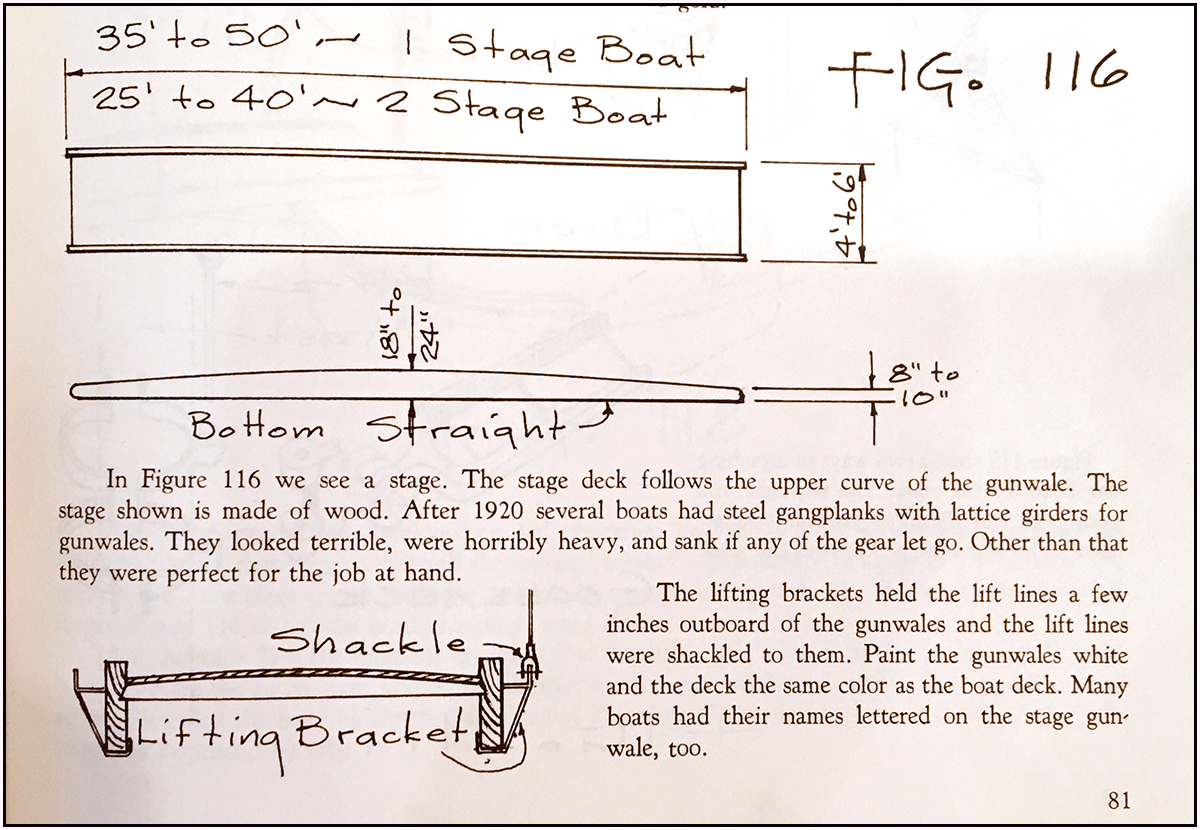 35' to 50' ~ 1 Stage Boat
FIG. 116
25' to 40' ~ 2 Stage Boat
4' to 6'
18" to
24"
8" to
10"
Bottom Straight
In Figure 116 we see a stage. The stage deck follows the upper curve of the gunwale. The
stage shown is made of wood. After 1920 several boats had steel gangplanks with lattice girders for
gunwales. They looked terrible, were horribly heavy, and sank if any of the gear let go. Other than that
they were perfect for the job at hand.
The lifting brackets held the lift lines a few
inches outboard of the gunwales and the lift lines
were shackled to them. Paint the gunwales white
and the deck the same color as the boat deck. Many
boats had their names lettered on the stage gun-
wale, too.
Shackle
Lifting Bracket
81